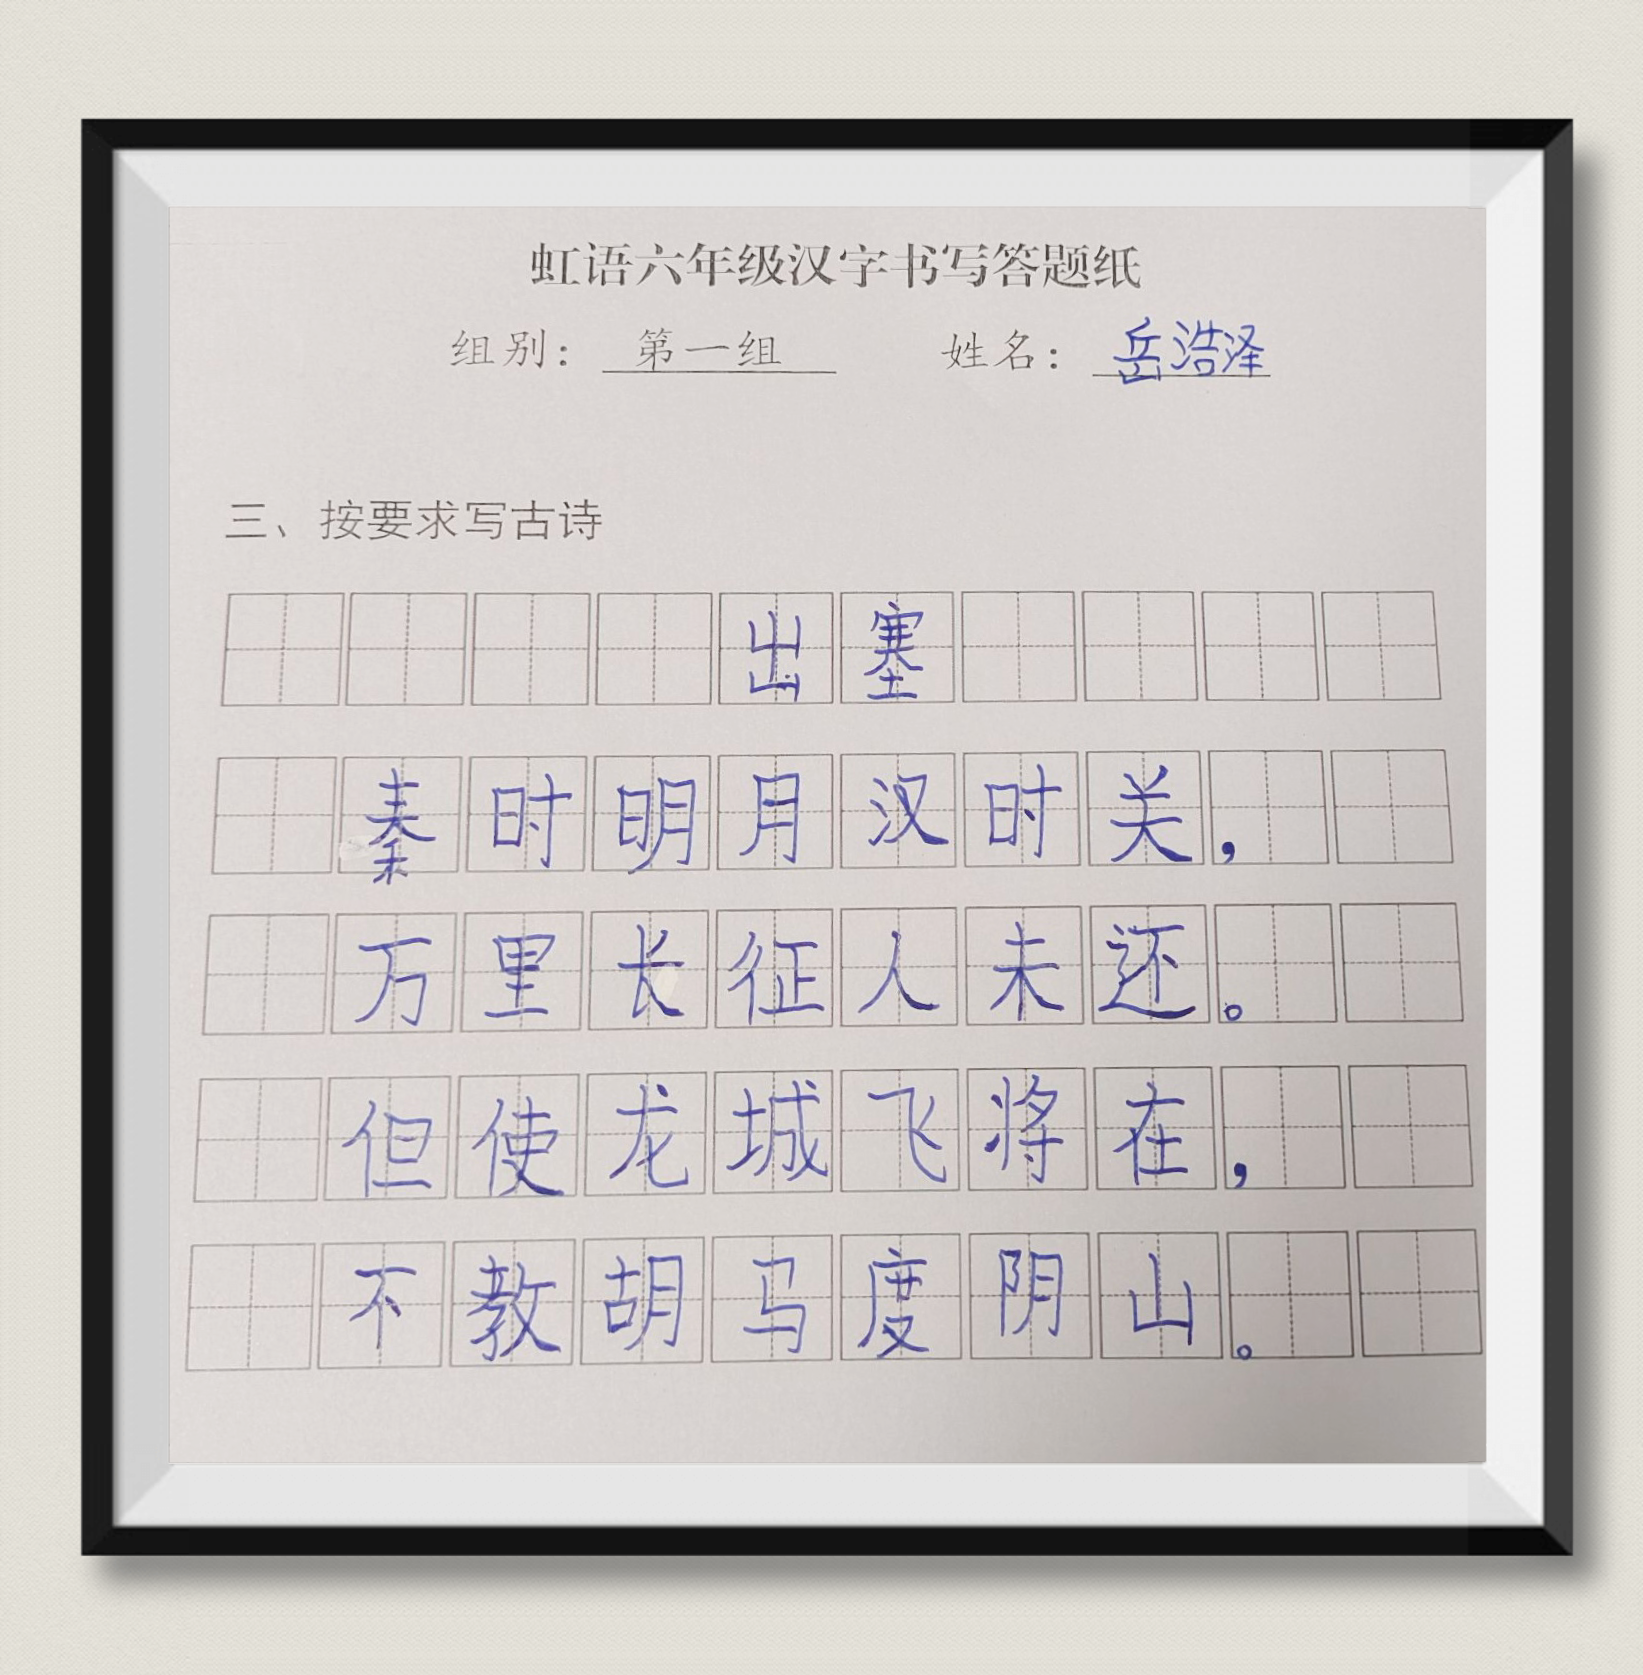 虹语六年级汉字书写答题纸
组别：第一组 姓名：岳浩泽
三、按要求写古诗
出塞
秦时明月汉时关，
万里长征人未还。
但使龙城飞将在，
不教胡马度阴山。